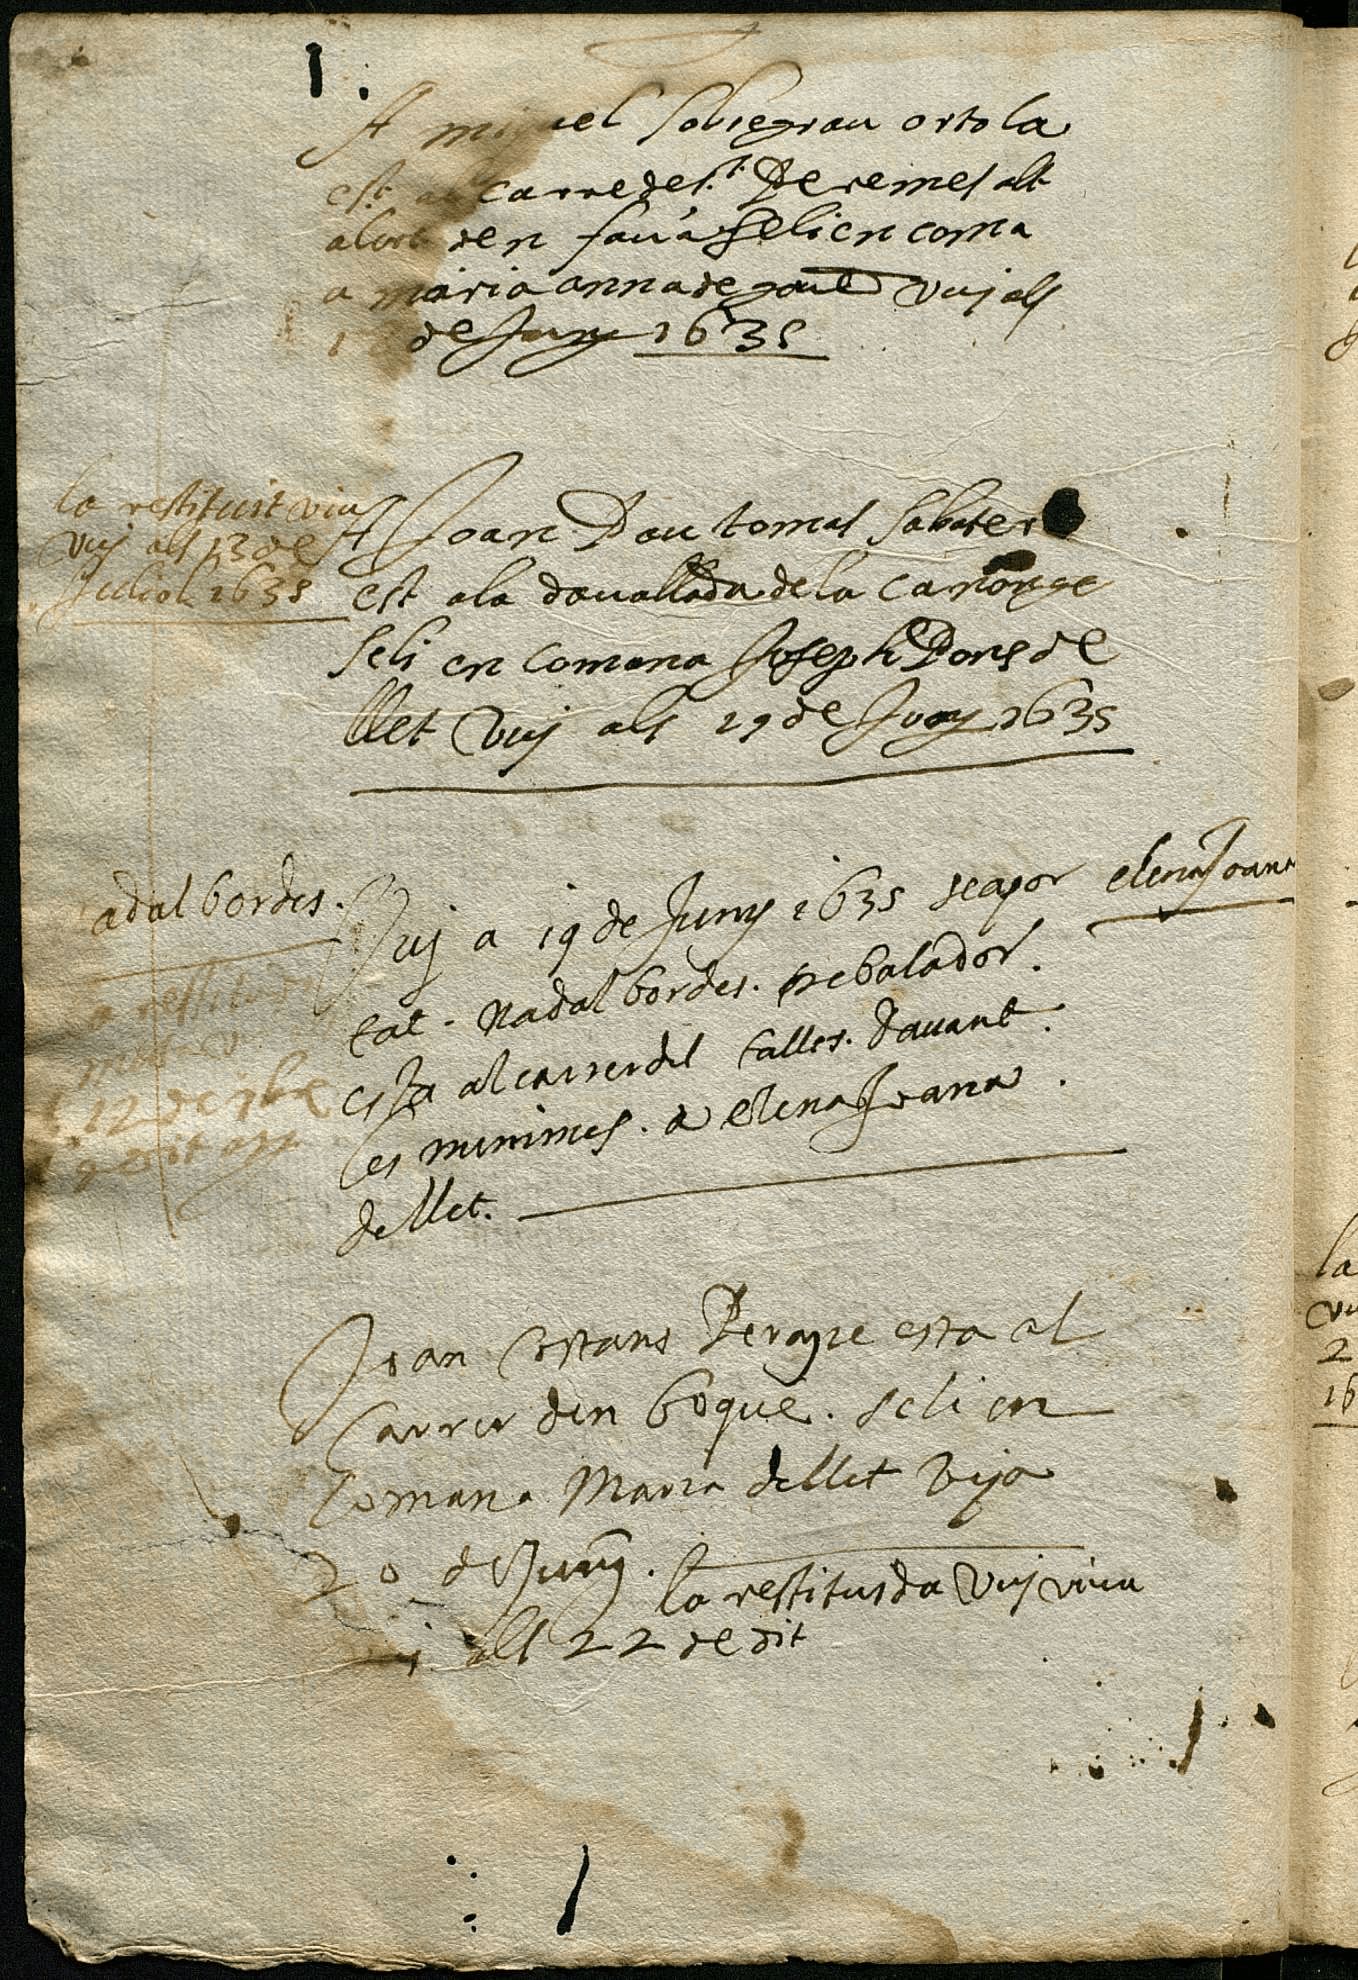 A miquel sobregrau ortola
est al carre de St. Pere mes alt
al ort den fava seli en coma
a maria anna de gau vuj als
de Juny 1635
la restituit viu
vuj als 13 de
Juliol 1635
A Joan Pau tomas sabater
est ala davallada de la canonge
seli en comana Joseph Pons de
llet vuj als 19 de Juny 1635
adal bordes.
Vuj a 19 de Juny 1635 se apor elena Joana
tat. nadal bordes. rebalador.
esta al carrer del talles. davant.
les minimes. a elena Joana.
de llet.
a restituida
12 de
Joan Costans Perayre esta al
Carrer den boque. seli en
Comana Maria de llet vija
20 de Juny.
la restituida vuj viva
als 22 de dit